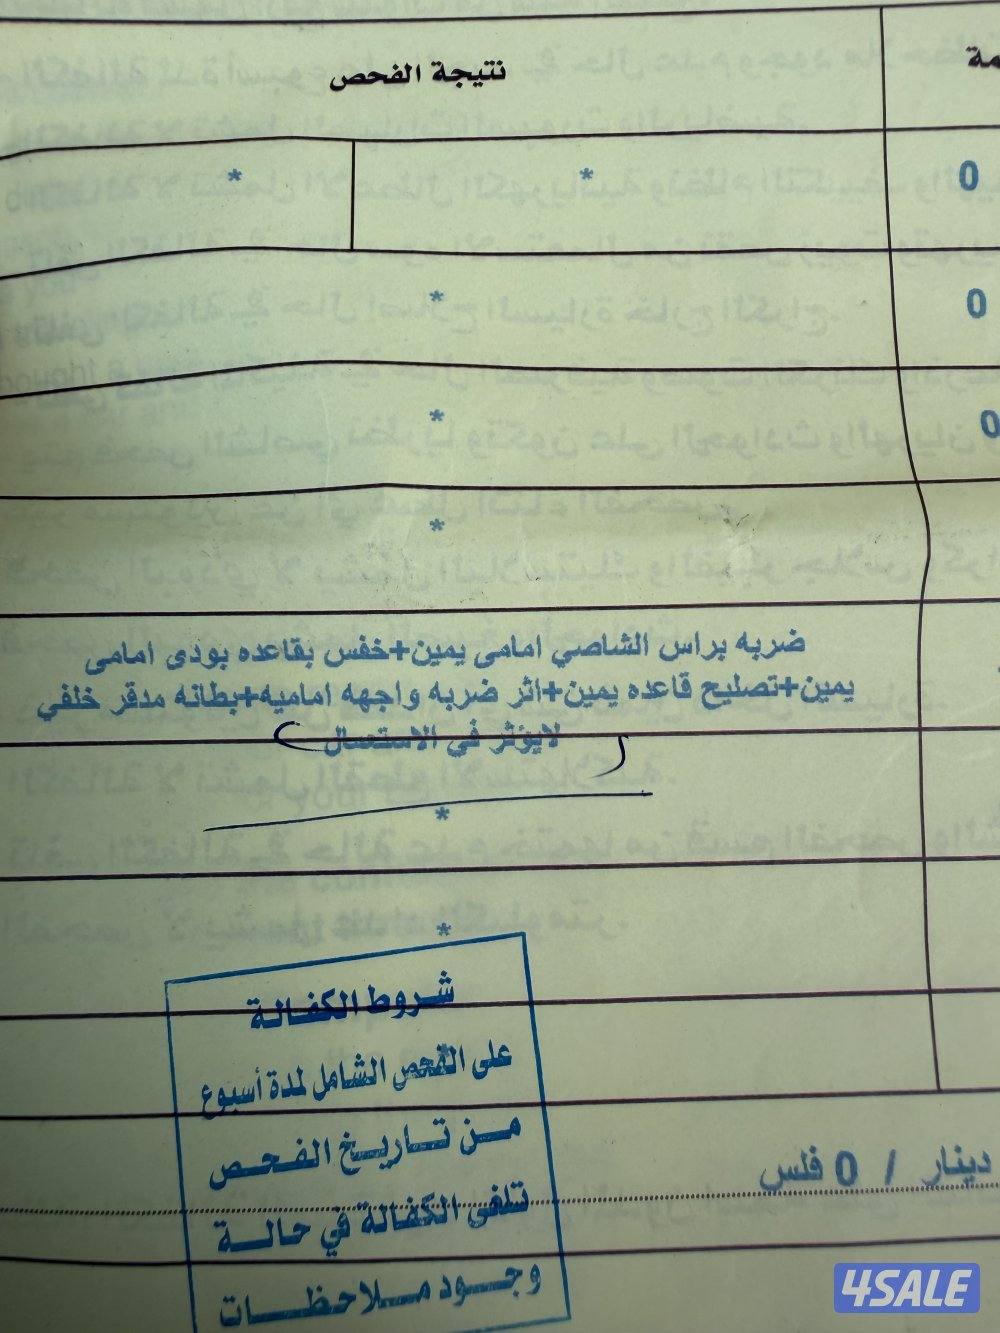 نتيجة الفحص
* * 0
* 0
* 0
*
ضربه براس الشاصي امامى يمين+خفس بقاعده بودى امامى
يمين+تصليح قاعده يمين+اثر ضربه واجهه اماميه+بطانه مدقر خلفي
لايؤثر في الاستعمال
*
*
شروط الكفالة
على الفحص الشامل لمدة أسبوع
من تاريخ الفحص
تلغى الكفالة في حالة
وجود ملاحظات
دينار / 0 فلس
4SALE